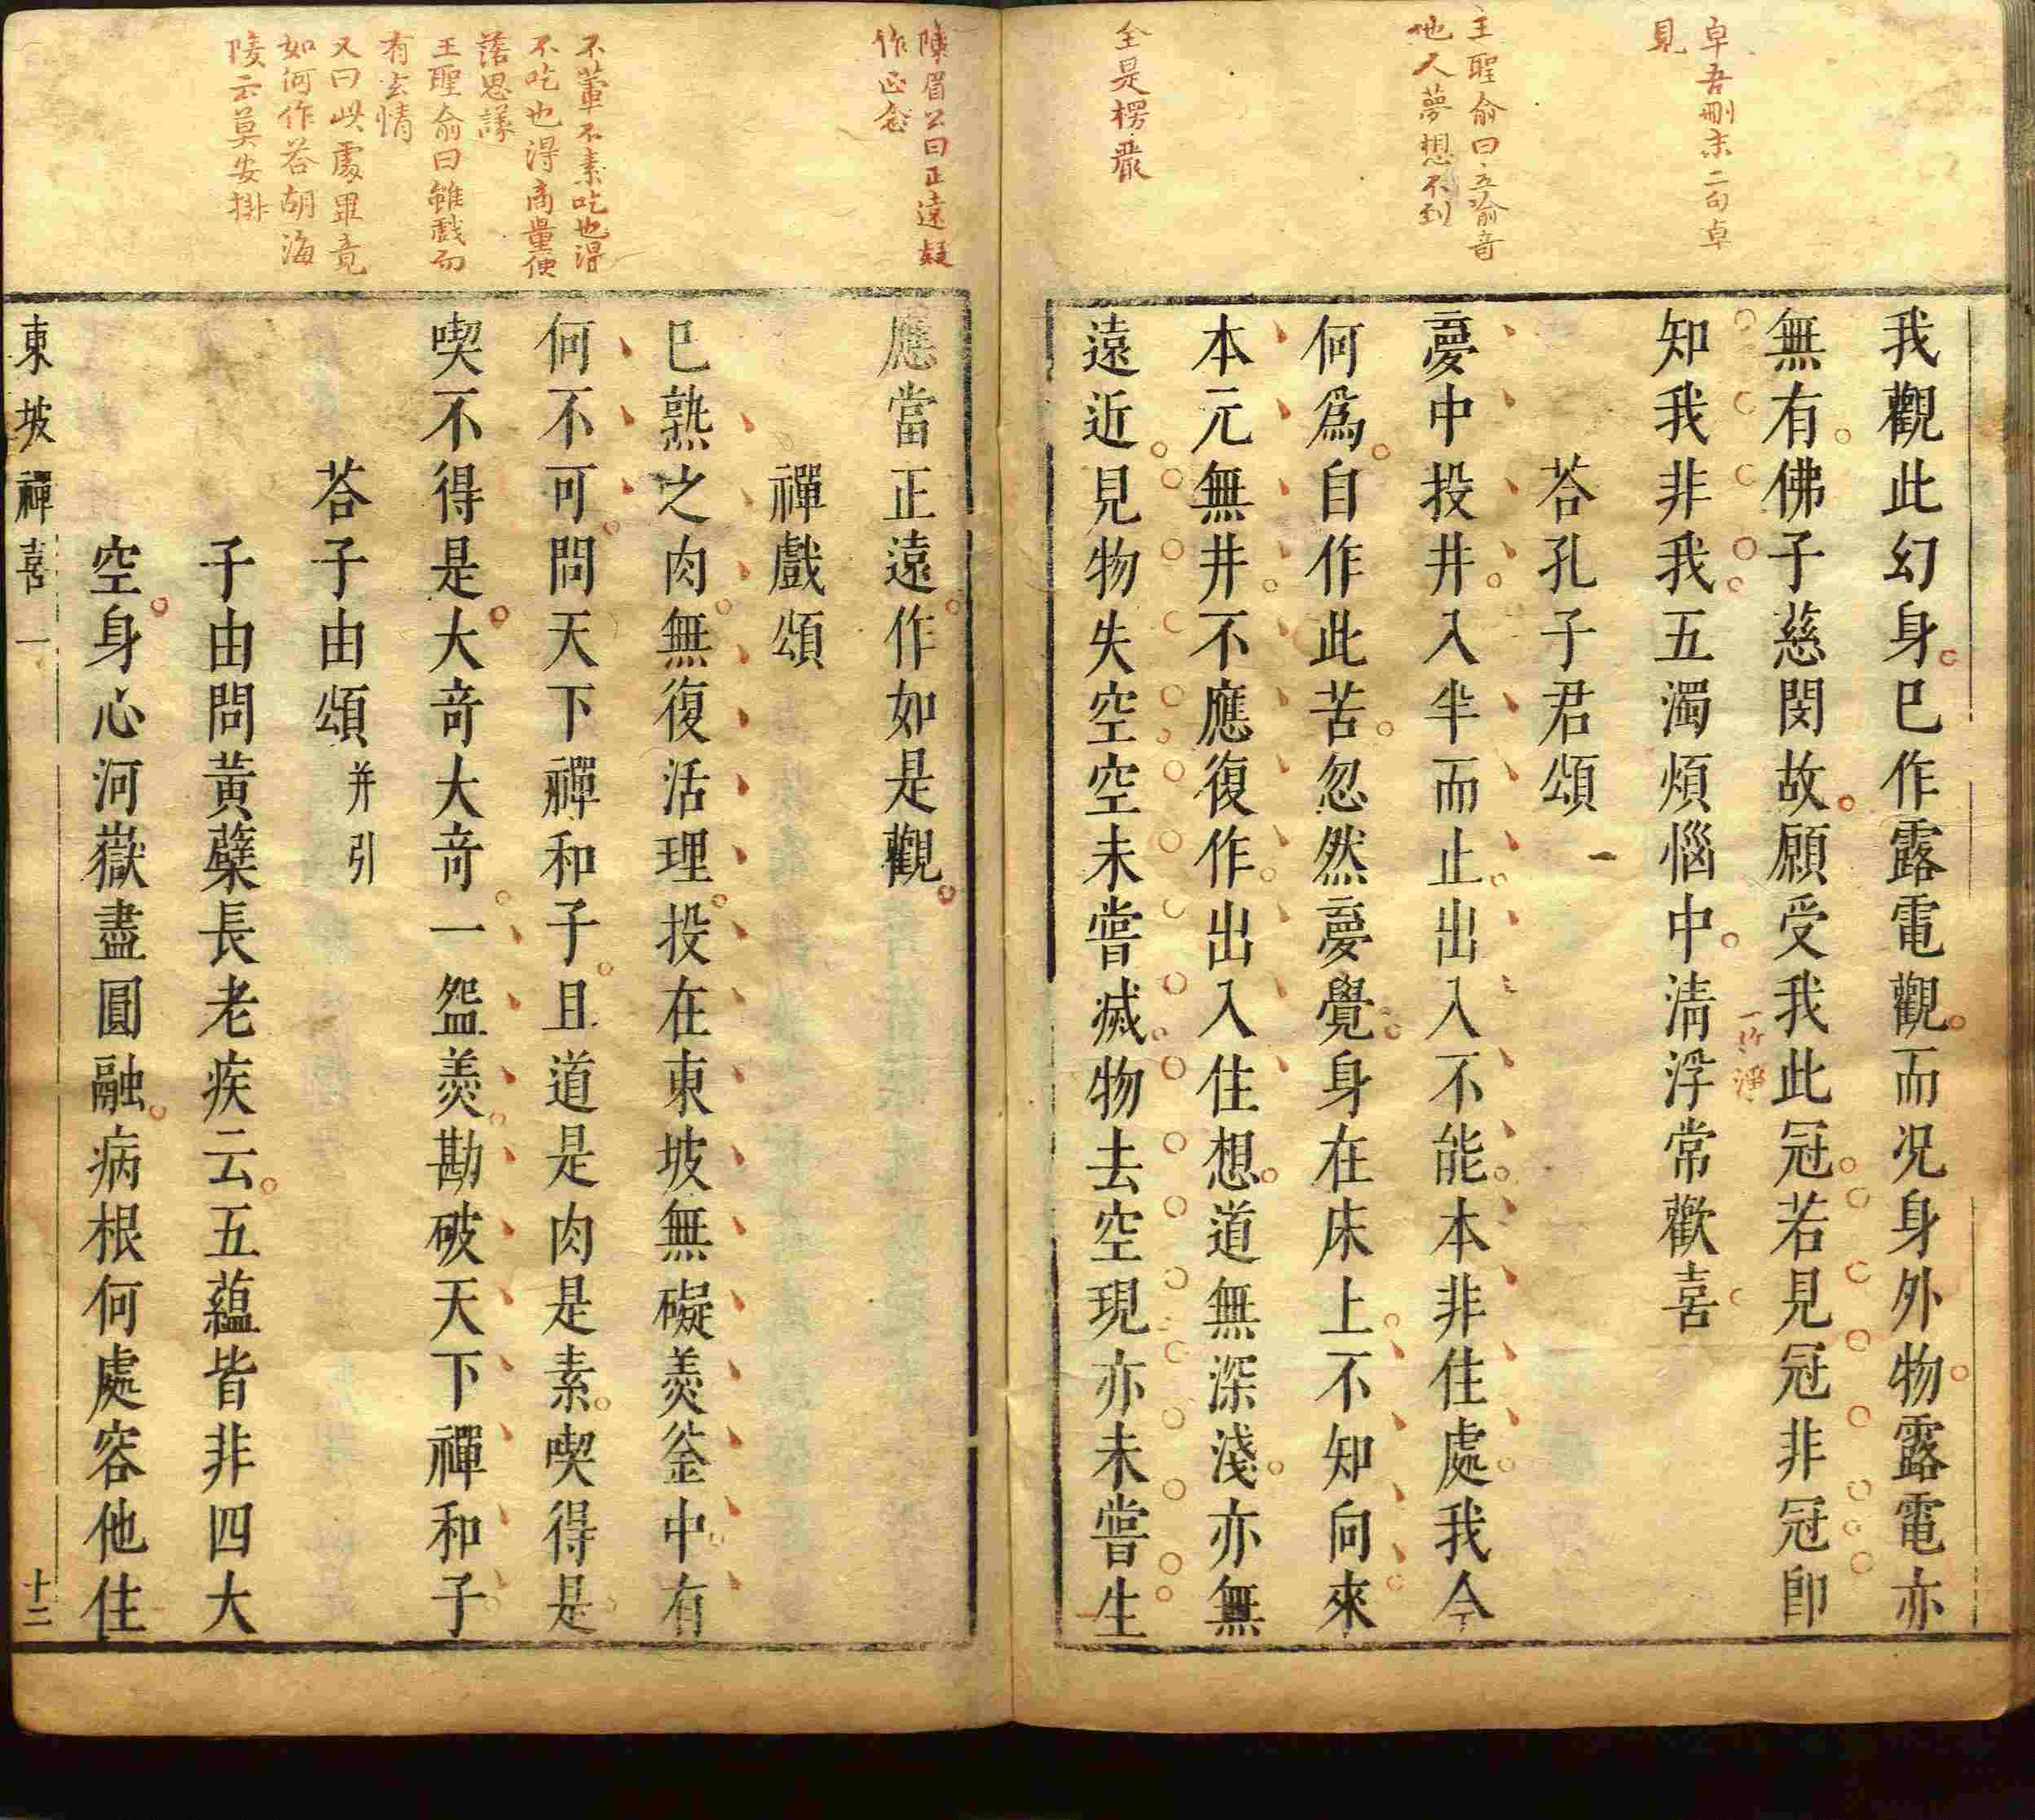 卓吾刪末二句卓
見
王聖俞曰立論奇
他人夢想不到
全是楞嚴
我觀此幻身已作露電觀而况身外物露電亦
無有佛子慈閔故願受我此冠若見冠非冠卽
知我非我五濁煩惱中清浮常歡喜
一作淨
荅孔子君頌
夢中投井入半而止出入不能本非住處我今
何爲自作此苦忽然夢覺身在床上不知向來
本元無井不應復作出入住想道無深淺亦無
遠近見物失空空未嘗滅物去空現亦未嘗生
陳眉公曰正遠疑
作正念
不葷不素吃也得
不吃也得商量便
落思議
王聖俞曰雖戲而
有玄情
又曰此處畢竟
如何作荅胡海
陵云莫安排
應當正遠作如是觀
禪戲頌
已熟之肉無復活理投在東坡無礙羹釜中有
何不可問天下禪和子且道是肉是素喫得是
喫不得是大奇大奇一盌羹勘破天下禪和子
荅子由頌 并引
子由問黃蘗長老疾云五蘊皆非四大
空身心河嶽盡圓融病根何處容他住
東坡禪喜 一 十二